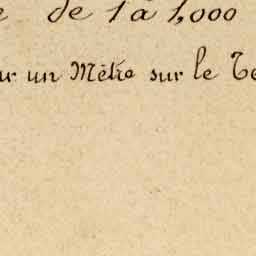 de 1 à 1,000
ur un Mètre sur le Te